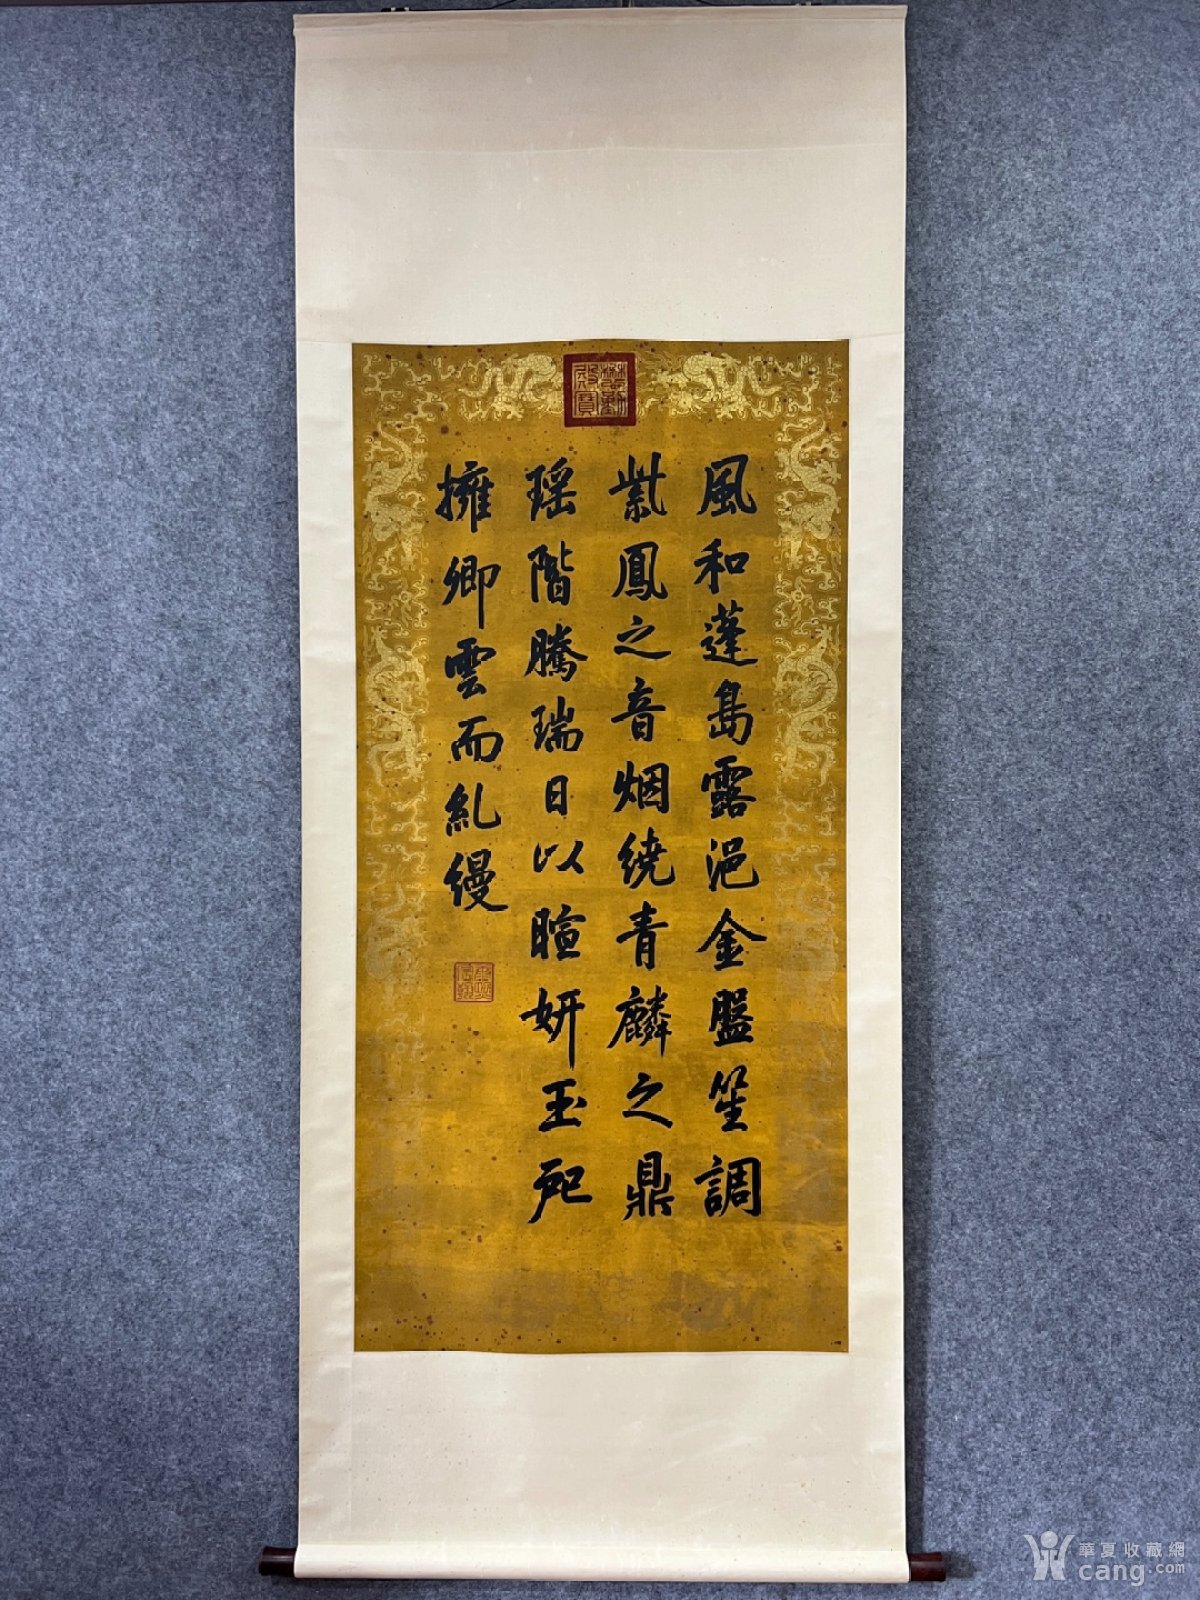 懋勤殿寶
風和蓬島露浥金盤笙調
紫鳳之音烟繞青麟之鼎
瑶階騰瑞日以暄妍玉戺
擁卿雲而糺縵
華夏收藏網
cang.com